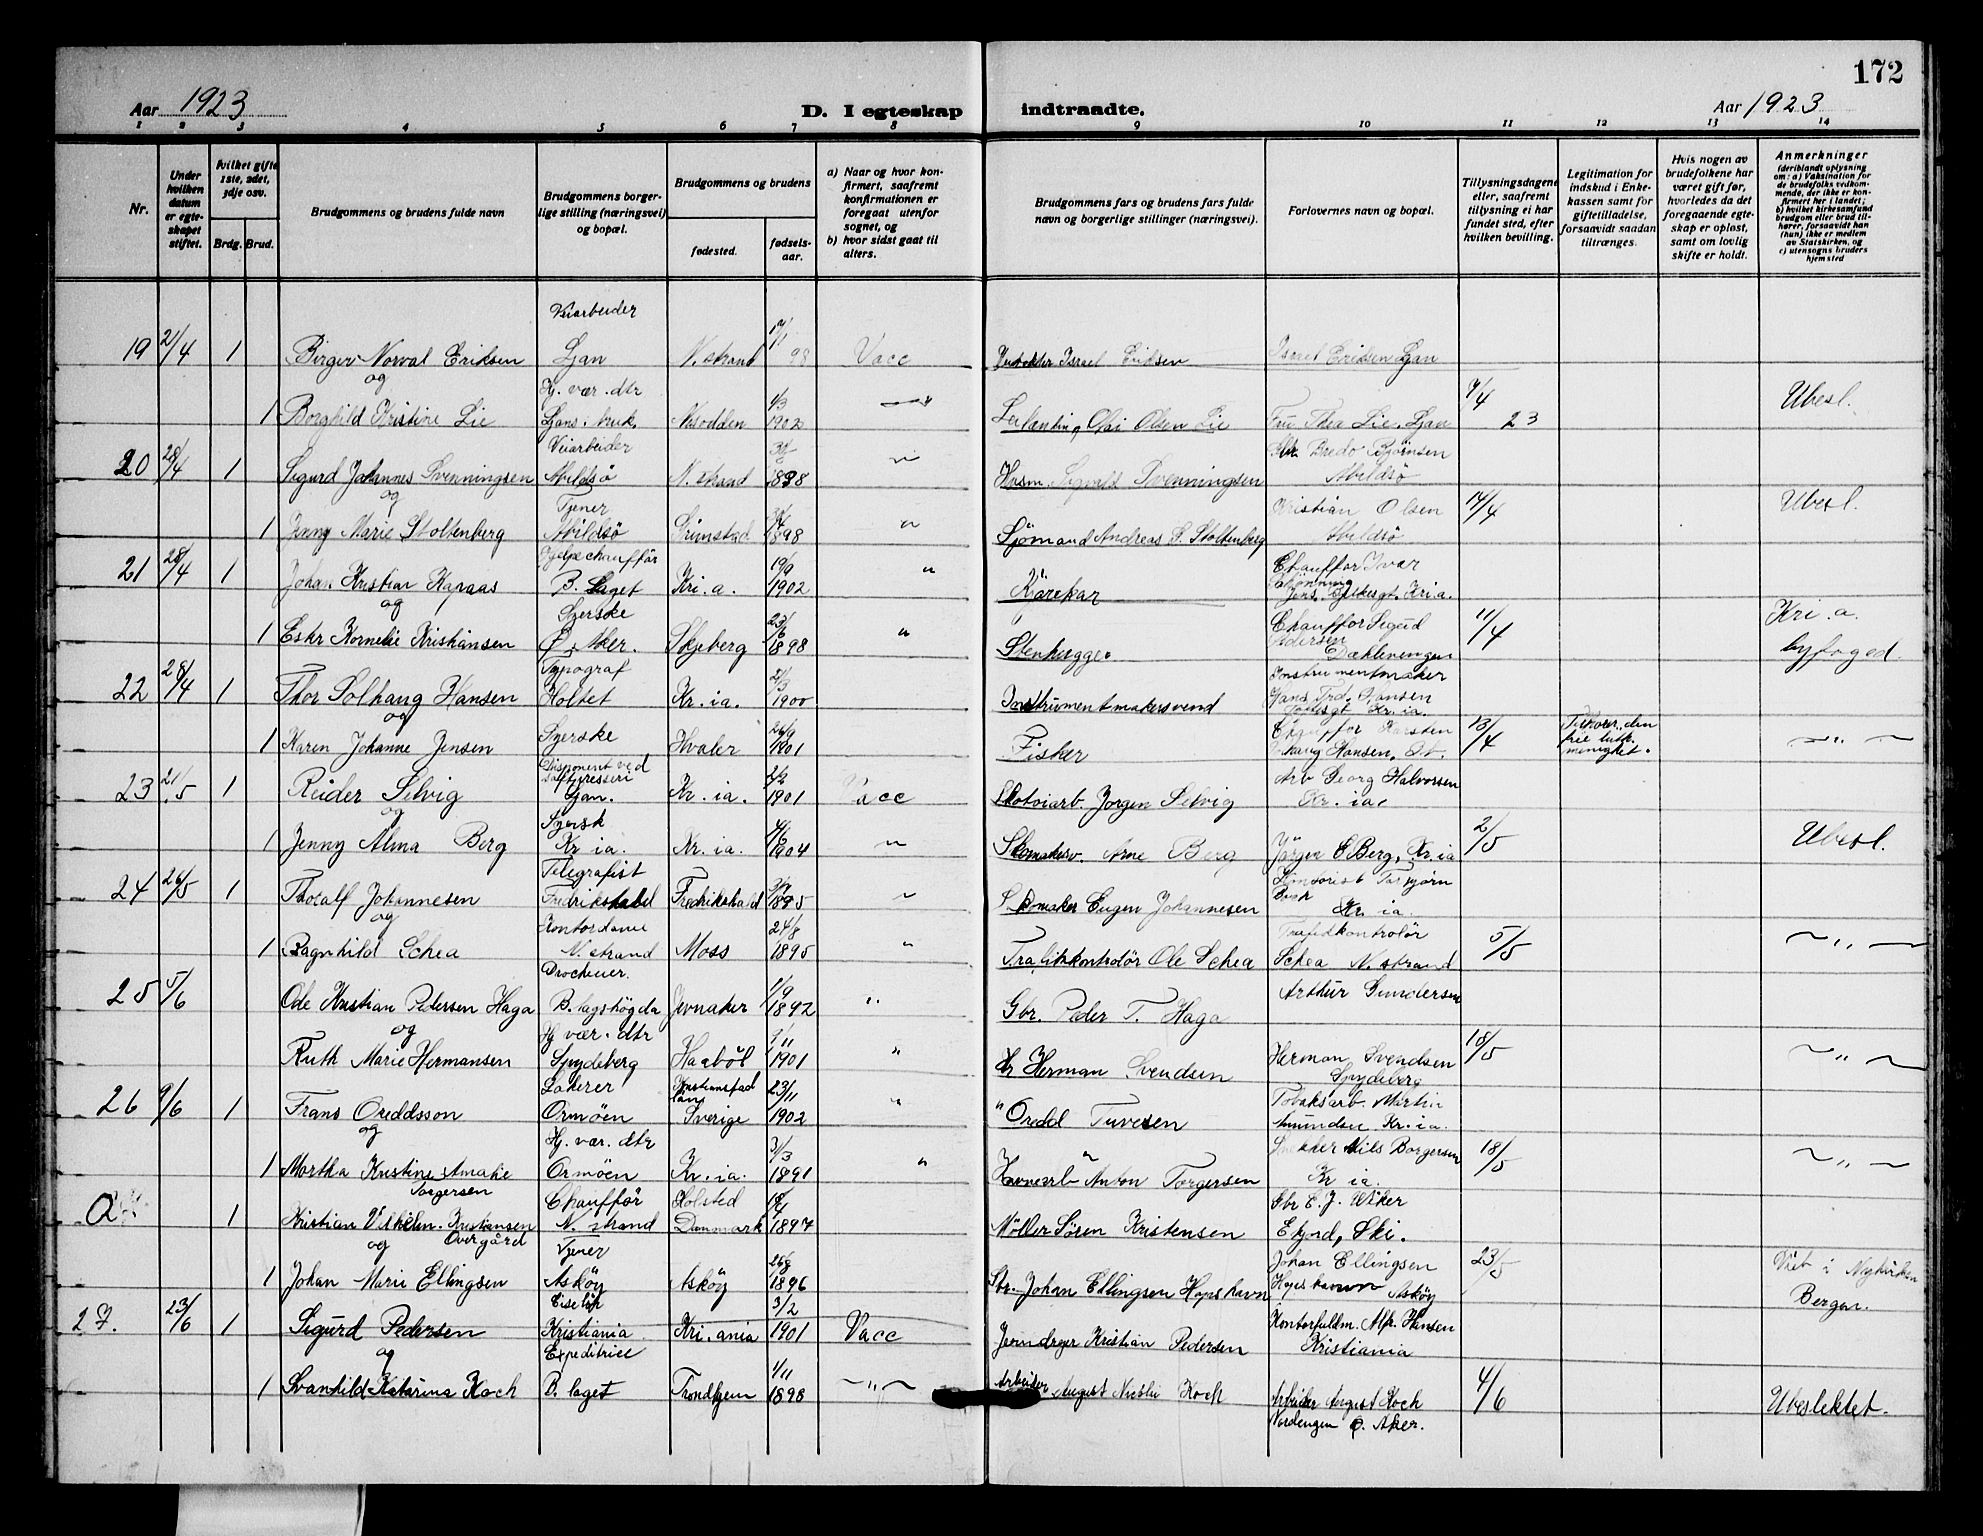 172
Aar 1923
D. I egteskap
indtraadte.
Aar 1923
1 2 3 4 5 6 7 8 9 10 11 12 13 14
Nr.
Under hvilken datum er egteskapet stiftet.
hvilket gifte 1ste, 2det, 3dje osv.
Brdg. Brud.
Brudgommens og brudens fulde navn
Brudgommens borgerlige stilling (næringsvei) og bopæl.
Brudgommens og brudens
fødested.
fødselsaar.
a) Naar og hvor konfirmert, saafremt konfirmationen er foregaat utenfor sognet, og
b) hvor sidst gaat til alters.
Brudgommens fars og brudens fars fulde navn og borgerlige stillinger (næringsvei).
Forlovernes navn og bopæl.
Tillysningsdagene eller, saafremt tillysning ei har fundet sted, efter hvilken bevilling.
Legitimation for indskud i Enkekassen samt for giftetilladelse, forsaavidt saadan tiltrænges.
Hvis nogen av brudefolkene har været gift før, hvorledes da det foregaaende egteskap er opløst, samt om lovlig skifte er holdt.
Anmerkninger
(deriblandt oplysning om: a) Vaksination for de brudefolks vedkommende, der ikke er konfirmert her i landet; b) hvilket kirkesamfund brudgom eller brud tilhører, forsaavidt han (hun) ikke er medlem av Statskirken, og c) utensogns bruders hjemsted
Veiarbeider
19 21/4 1 Birger Norval Eriksen Ljan N. strand 98 Vacc Israel Eriksen Israel Eriksen Ljan
og Hj. vær. dtr
1 Borghild Kristine Lie Ljans. bruk Nesodden 1902 Olai Olsen Lie Fru Thea Lie. Ljan 9/4 23 Ubesl.
Veiarbeider
20 28/4 1 Sigurd Johannes Svenningsen Abildsø N. strand 1898 Husm. Sigvald Svenningsen Bredo Bjørnsen Abildsø
og Tjener
1 Jenny Marie Stoltenberg Abildsø Grimstad 1898 Sjømand Andreas S. Stoltenberg Kristian Olsen Abildsø 14/4 Ubesl.
Hjelpechauffør
21 28/4 1 Johan Kristian Kapaas B. Laget Kri.a. 19/9 1902 Kjørekar Chauffør Ivar Kri a.
og Syerske
1 Ester Kornelie Kristiansen Ø. Aker. Skjeberg 23/6 1898 Stenhugger Chauffør Sigurd Pedersen 11/4 Kri.a. byfoged.
Typograf
22 28/4 1 Thor Solhaug Hansen Holtet Kr.ia. 21/3 1900 Instrumentmakersvend Instrumentmaker Hans Fred. Hansen Kr.ia.
og
1 Karen Johanne Jensen Syerske Hvaler 26/9 1901 Fisker Chauffør Karsten Hansen. 13/4 Tilhører den frie luth. menighet. — " —
Disponent ved saftpresseri
23 21/5 1 Reidar Selvig Ljan. Kr.ia. 1901 Vacc Skotøiarb. Jørgen Selvig Arb Georg Halvorsen Kr.ia.
og Syersk
1 Jenny Alma Berg Kr ia. Kr.ia. 4/6 1904 Skomakerv. Arne Berg Jørgen E Berg, Kr.ia 2/5 Ubesl.
Telegrafist
24 26/5 1 Thoralf Johannesen Fredrikshald Fredrikshald 1895 Skomaker Eugen Johannesen Torbjørn Kr.ia.
og Kontordame
1 Ragnhild Schea N. strand Moss 24/8 1895 Trafikkontrolør Ole Schea Trafikkontrolør Schea N. strand 5/5 — " —
25 5/6 Ole Kristian Pedersen Haga B. lagshøgda Jevnaker 1/9 1892 Gbr. Peder T. Haga Arthur Gundersen
og Hj vær. dtr
Ruth Marie Hermansen Spydeberg Haabøl 9/11 1901 Herman Svendsen Herman Svendsen Spydeberg 18/5 — " —
Lakerer
26 9/6 1 Frans Oreddsson Ormøen Kristianstad län Sverige 23/11 1902 " Oredd Tuvesen Tobaksarb. Martin Amundsen Kr.ia.
og Hj. vær. dtr
1 Martha Kristine Amalie Torgersen Ormøen Kr.ia. 3/3 1891 Havnearb Anton Torgersen Nils Borgersen Kr ia. 18/5 — " —
Chauffør
1 Kristian Vilhelm Kristiansen Overgård N. strand Holsted Danmark 1897 Møller Søren Kristensen Gbr E. J. Uker Ski.
og Tjener
1 Johan Marie Ellingsen Askøy Askøy 26/8 1896 Str. Johan Ellingsen Hopshavn Johan Ellingsen Hopshavn Askøy 23/5 Viet i Nykirken Bergen.
27. 23/6 1 Sigurd Pedersen Kristiania Kri.ania 3/2 1901 Vacc Kristian Pedersen Kontorfuldm. Alfr. Hansen Kristiania
og Expeditrice
1 Svanhild Katarina Koch B. laget Trondhjem 1/11 1898 — " — Arbeider August Koch Arbeider August Koch Nordengen Ø. Aker. 4/6 Ubeslektet.